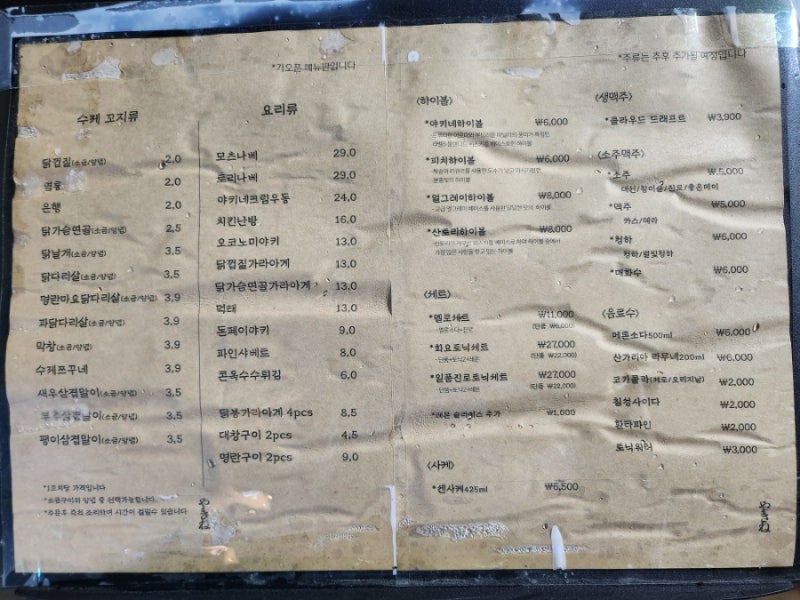 *가오픈 메뉴판입니다
수케 꼬지류
닭껍질(소금/양념) 2.0
염통 2.0
은행 2.0
닭가슴연골(소금/양념) 2.5
닭날개(소금/양념) 3.5
닭다리살(소금/양념) 3.5
명란마요닭다리살(소금/양념) 3.9
파닭다리살(소금/양념) 3.9
막창(소금/양념) 3.9
수케쯔꾸네 3.9
새우삼겹말이(소금/양념) 3.5
부추삼겹말이(소금/양념) 3.5
팽이삼겹말이(소금/양념) 3.5
*1꼬치당 가격입니다
*소금구이와 양념 중 선택가능합니다.
*주문후 즉석 조리하여 시간이 걸릴수 있습니다
요리류
모츠나베 29.0
토리나베 29.0
야키네크림우동 24.0
치킨난방 16.0
오코노미야키 13.0
닭껍질가라아게 13.0
닭가슴연골가라아게 13.0
먹태 13.0
돈페이야키 9.0
파인샤베트 8.0
콘옥수수튀김 6.0
닭봉가라아게 4pcs 8.5
대창구이 2pcs 4.5
명란구이 2pcs 9.0
*주류는 추후 추가될 예정입니다
<하이볼>
*야키네하이볼 ₩6,000
*피치하이볼 ₩6,000
*얼그레이하이볼 ₩8,000
*산토리하이볼 ₩8,000
<세트>
*멜로세트 ₩11,000
*화요토닉세트 ₩27,000
(단품 ₩22,000)
*일품진로토닉세트 ₩27,000
(단품 ₩22,000)
*레몬 슬라이스 추가 ₩1,000
<사케>
*센사케425ml ₩6,500
<생맥주>
*클라우드 드래프트 ₩3,900
<소주맥주>
*소주 ₩5,000
대선/참이슬/진로/좋은데이
*맥주 ₩5,000
카스/테라
*청하 ₩6,000
청하/별빛청하
*매화수 ₩6,000
<음료수>
메론소다500ml ₩6,000
산가리아 라무네200ml ₩6,000
코카콜라(제로/오리지날) ₩2,000
칠성사이다 ₩2,000
환타파인 ₩2,000
토닉워터 ₩3,000